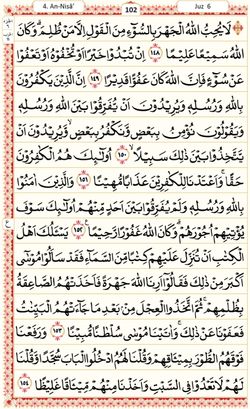 4. An-Nisā' 102 Juz 6
لَا يُحِبُّ اللّٰهُ الْجَهْرَ بِالسُّوْٓءِ مِنَ الْقَوْلِ اِلَّا مَنْ ظُلِمَ ؕ وَكَانَ
اللّٰهُ سَمِيْعًا عَلِيْمًا ﴿١٤٨﴾ اِنْ تُبْدُوْا خَيْرًا اَوْ تُخْفُوْهُ اَوْ تَعْفُوْا
عَنْ سُوْٓءٍ فَاِنَّ اللّٰهَ كَانَ عَفُوًّا قَدِيْرًا ﴿١٤٩﴾ اِنَّ الَّذِيْنَ يَكْفُرُوْنَ
بِاللّٰهِ وَرُسُلِهٖ وَيُرِيْدُوْنَ اَنْ يُّفَرِّقُوْا بَيْنَ اللّٰهِ وَرُسُلِهٖ
وَيَقُوْلُوْنَ نُؤْمِنُ بِبَعْضٍ وَّنَكْفُرُ بِبَعْضٍ ۙ وَّيُرِيْدُوْنَ اَنْ
يَّتَّخِذُوْا بَيْنَ ذٰلِكَ سَبِيْلًا ﴿١٥٠﴾ اُولٰٓئِكَ هُمُ الْكٰفِرُوْنَ
حَقًّا ۚ وَاَعْتَدْنَا لِلْكٰفِرِيْنَ عَذَابًا مُّهِيْنًا ﴿١٥١﴾ وَالَّذِيْنَ اٰمَنُوْا
بِاللّٰهِ وَرُسُلِهٖ وَلَمْ يُفَرِّقُوْا بَيْنَ اَحَدٍ مِّنْهُمْ اُولٰٓئِكَ سَوْفَ
يُؤْتِيْهِمْ اُجُوْرَهُمْ ؕ وَكَانَ اللّٰهُ غَفُوْرًا رَّحِيْمًا ﴿١٥٢﴾ يَسْـَٔلُكَ اَهْلُ
الْكِتٰبِ اَنْ تُنَزِّلَ عَلَيْهِمْ كِتٰبًا مِّنَ السَّمَآءِ فَقَدْ سَاَلُوْا مُوْسٰٓى
اَكْبَرَ مِنْ ذٰلِكَ فَقَالُوْٓا اَرِنَا اللّٰهَ جَهْرَةً فَاَخَذَتْهُمُ الصّٰعِقَةُ
بِظُلْمِهِمْ ۚ ثُمَّ اتَّخَذُوا الْعِجْلَ مِنْۢ بَعْدِ مَا جَآءَتْهُمُ الْبَيِّنٰتُ
فَعَفَوْنَا عَنْ ذٰلِكَ ۚ وَاٰتَيْنَا مُوْسٰى سُلْطٰنًا مُّبِيْنًا ﴿١٥٣﴾ وَرَفَعْنَا
فَوْقَهُمُ الطُّوْرَ بِمِيْثَاقِهِمْ وَقُلْنَا لَهُمُ ادْخُلُوا الْبَابَ سُجَّدًا وَّقُلْنَا
لَهُمْ لَا تَعْدُوْا فِى السَّبْتِ وَاَخَذْنَا مِنْهُمْ مِّيْثَاقًا غَلِيْظًا ﴿١٥٤﴾